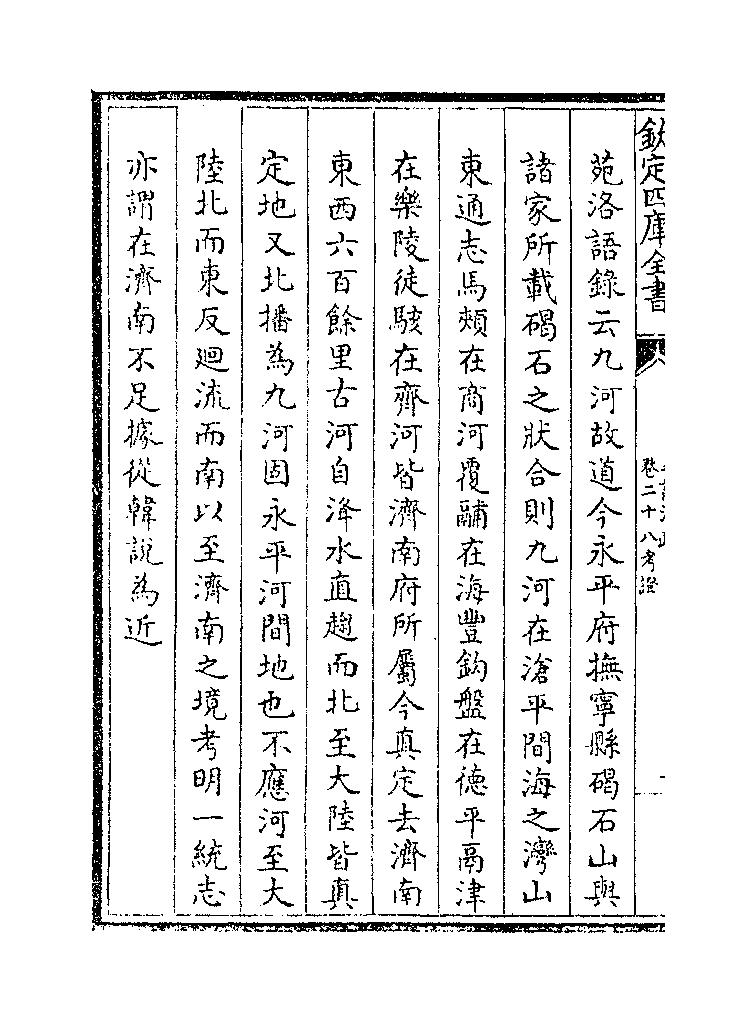 欽定四庫全書
卷二十八考證
苑洛語錄云九河故道今永平府撫寧縣碣石山與
諸家所載碣石之狀合則九河在滄平間海之灣山
東通志馬頰在商河覆鬴在海豐鈎盤在德平鬲津
在樂陵徒駭在齊河皆濟南府所屬今真定去濟南
東西六百餘里古河自洚水直趨而北至大陸皆真
定地又北播為九河固永平河間地也不應河至大
陸北而東反廻流而南以至濟南之境考明一統志
亦謂在濟南不足據從韓說為近